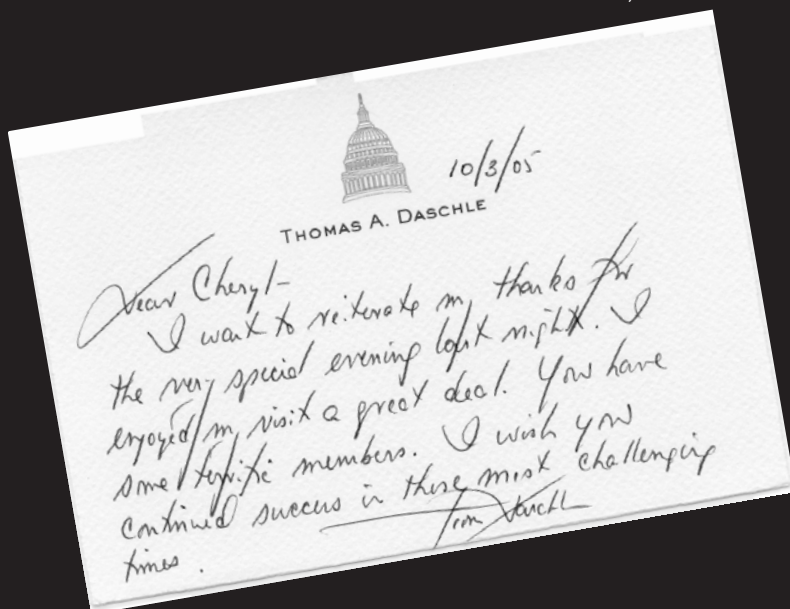 10/3/05
THOMAS A. DASCHLE
Dear Cheryl-
I want to reiterate my thanks for
the very special evening last night. I
enjoyed my visit a great deal. You have
some terrific members. I wish you
continued success in these most challenging
times.
Tom Daschle